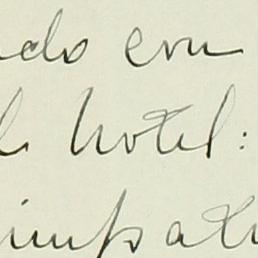 ndo con
l hotel:
impati